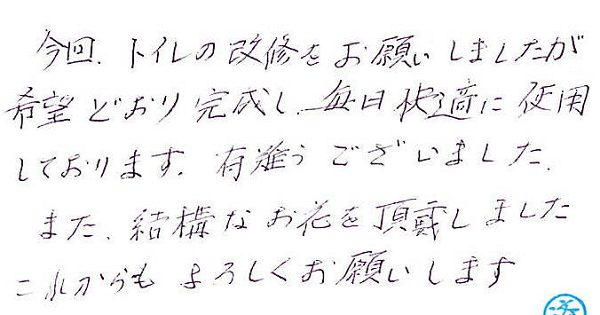 今回、トイレの改修をお願いしましたが
希望どおり完成し、毎日快適に使用
しております。有難うございました。
また、結構なお花を頂戴しました
これからもよろしくお願いします